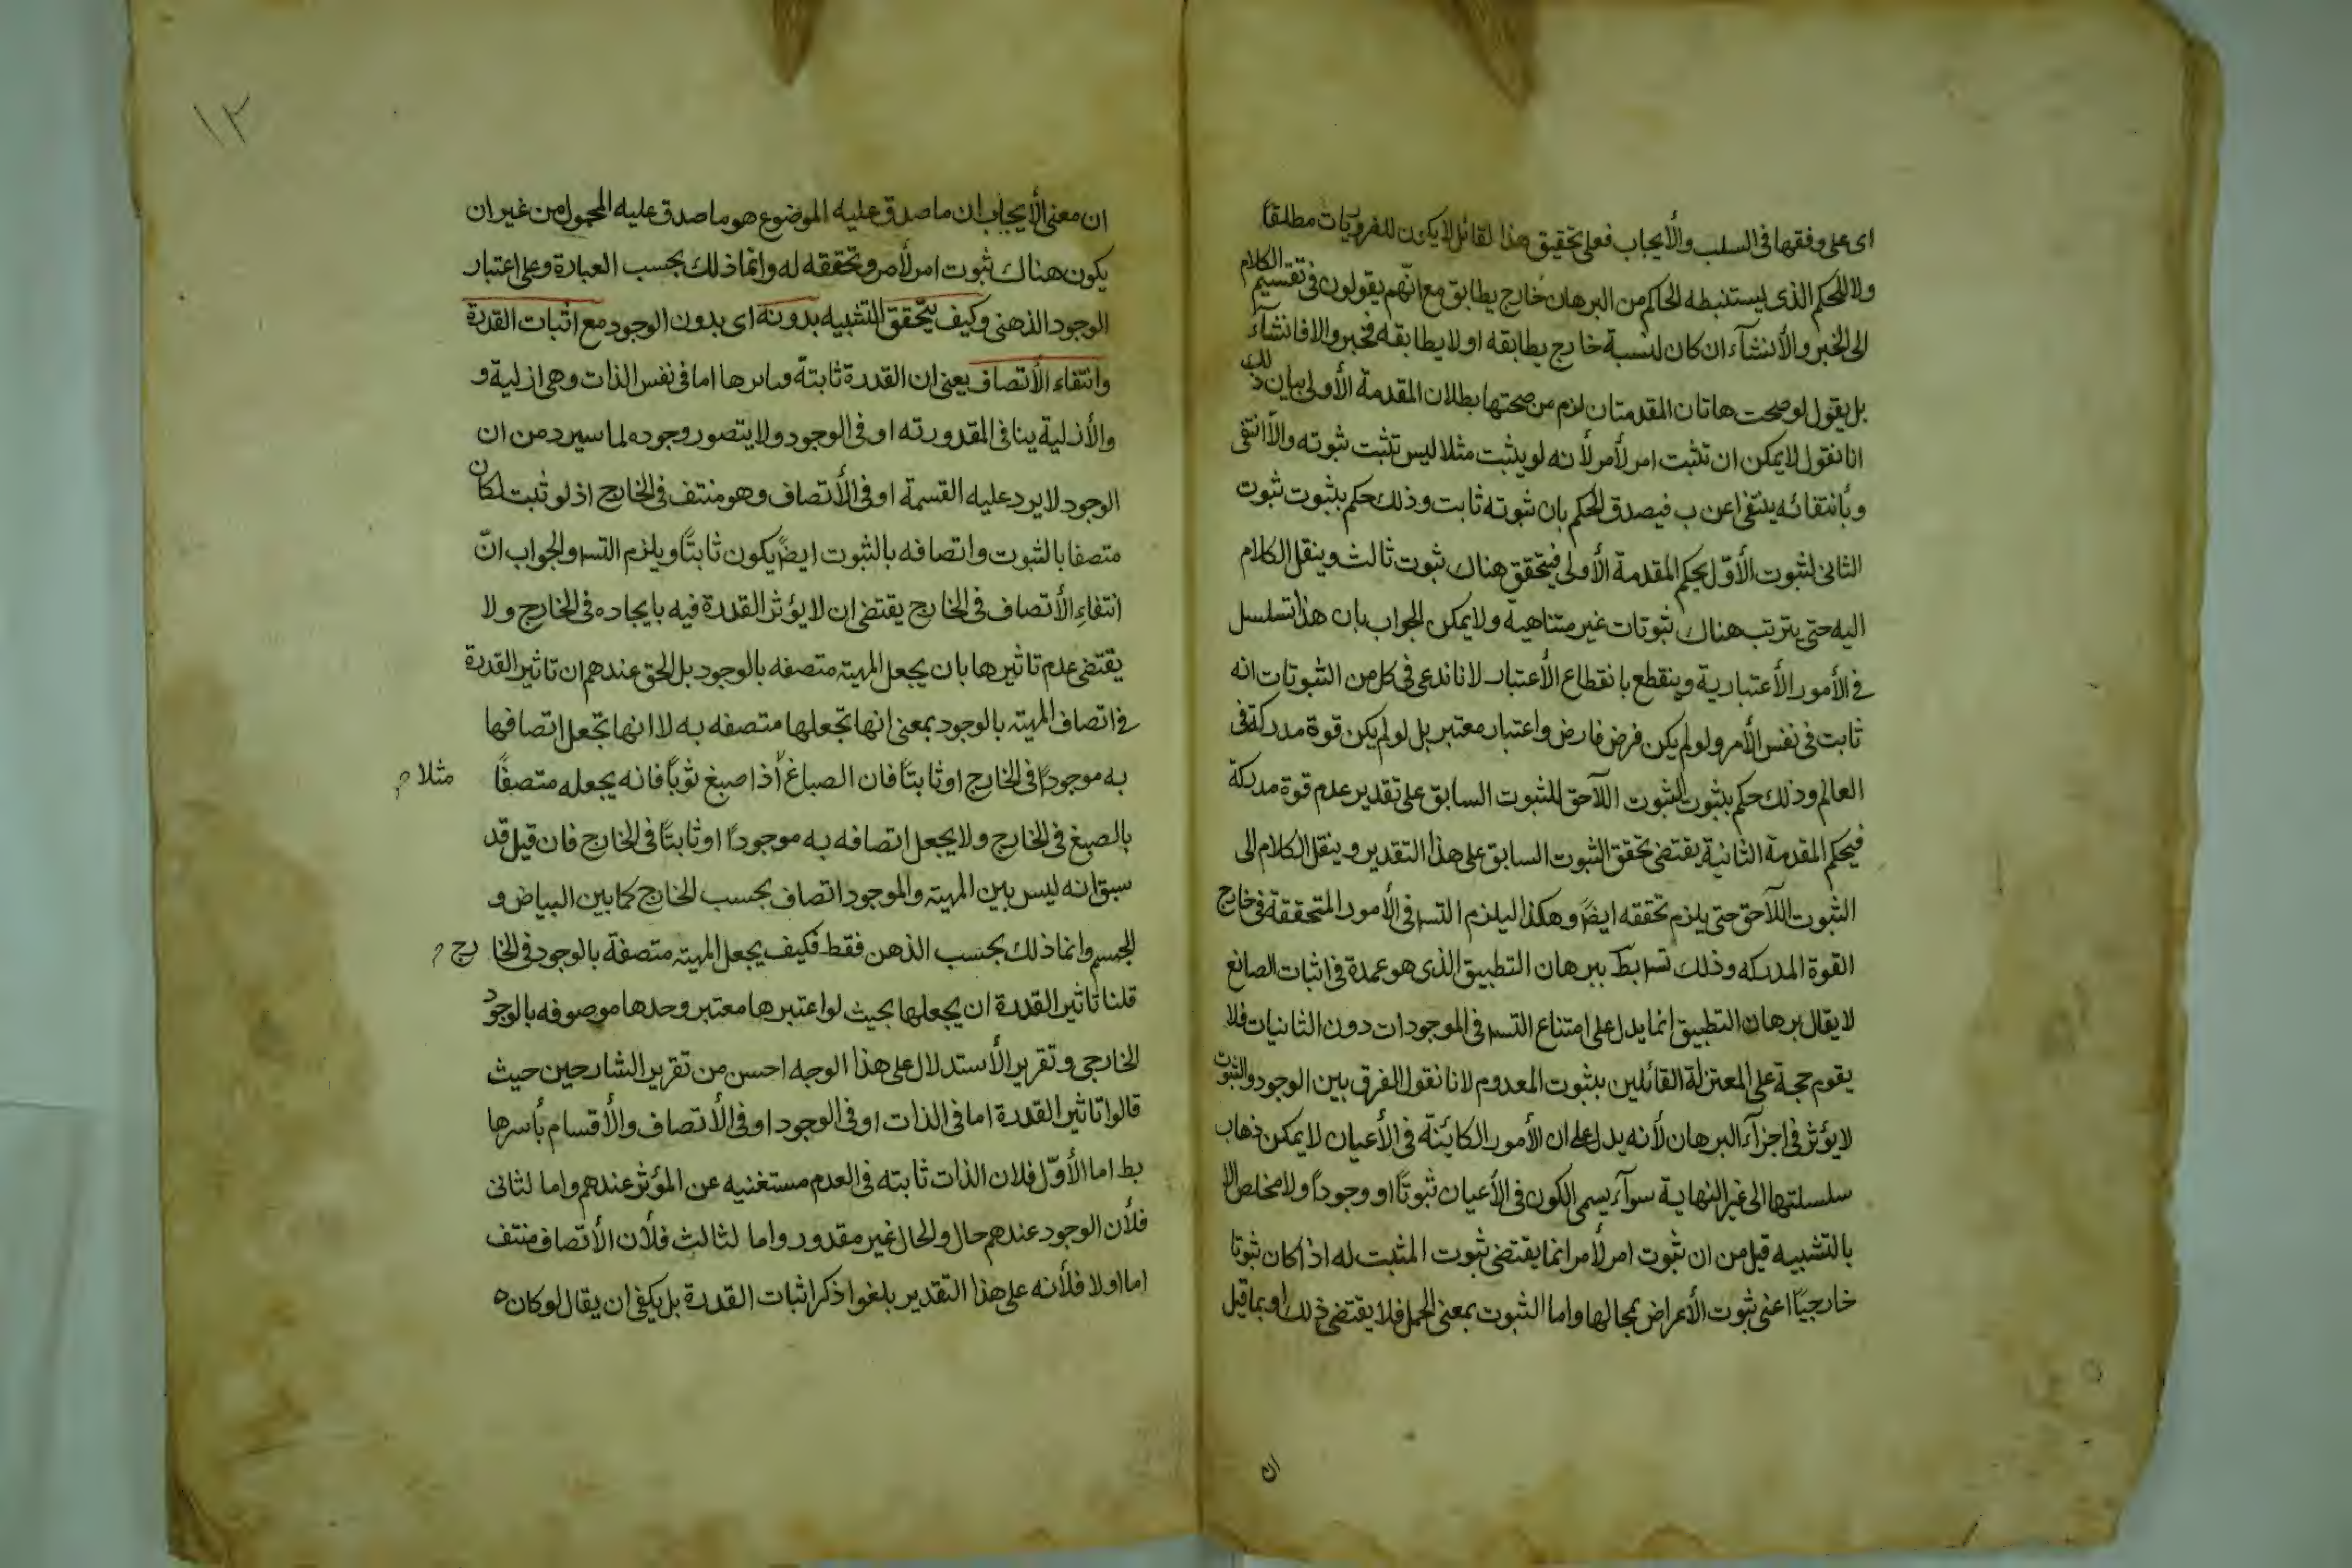 اى على وفقها فى السلب والأيجاب فعلى تحقيق هذا لقائل لايكون للضروريات مطلقاً
ولا للحكم الذى يستنبطه الحاكم من البرهان خارج يطابق مع انّهم يقولون فى تقسيم الكلام
الى الخبر والأنشآء ان كان لنسبة خارج يطابقه او لا يطابقه فخبر والا فانشآء
بل يقول لو صحت هاتان المقدمتان لزم من صحتها بطلان المقدمة الأولى بيان ذلك
انا نقول لايمكن ان تثبت امر لأمر لأنه لو يثبت مثلا ليس تثبت ثبوته والاّ انتفى
وبأنتفائه ينتفى اعن ب فيصدق الحكم بان ثبوته ثابت وذلك حكم بثبوت ثبوت
الثانى لثبوت الأوّل بحكم المقدمة الأولى فيتحقق هناك ثبوت ثالث وينقل الكلام
اليه حتى يترتب هناك ثبوتات غير متناهية ولايمكن الجواب بان هذا تسلسل
فى الأمور الأعتبارية وينقطع بانقطاع الأعتبار لانا ندعى فى كل من الثبوتات انه
ثابت فى نفس الأمر ولو لم يكن فرض فارض واعتبار معتبر بل لو لم يكن قوة مدركة فى
العالم وذلك حكم بثبوت الثبوت اللآحق للثبوت السابق على تقدير عدم قوة مدركة
فيحكم المقدمة الثانية يقتضى تحقق الثبوت السابق على هذا التقدير وينقل الكلام الى
الثبوت اللآحق حتى يلزم تحققه ايضً وهكذا اليلزم التسه فى الأمور المتحققة فى خارج
القوة المدركه وذلك تسه بط ببرهان التطبيق الذى هو عمدة فى اثبات الصانع
لا يقال برهان التطبيق انما يدل على امتناع التسه فى الموجودات دون الثانيات فلا
يقوم حجة على المعتزلة القائلين بثبوت المعدوم لانا نقول الفرق بين الوجود والثبوت
لايؤثر فى اجزآء البرهان لأنه يدل على ان الأمور الكائنة فى الأعيان لايمكن ذهاب
سلسلتها الى غير النهاية سوآء يسمى الكون فى الأعيان ثبوتًا او وجوداً ولا مخلص الا
بالتشبيه قيل من ان ثبوت امر لأمر انما يقتضى ثبوت المثبت له اذا كان ثبوتا
خارجيًا اعنى ثبوت الأعراض بمحالها واما الثبوت بمعنى الحمل فلا يقتضى ذلك او بما قيل
ان
١٣
ان معنى الأيجاب ان ما صدق عليه الموضوع هو ما صدق عليه المحمول من غير ان
يكون هناك ثبوت امر لأمر وتحققه له وانما ذلك بحسب العبارة وعلى اعتبار
الوجود الذهنى وكيف يتحقق التشبيه بدونه اى بدون الوجود مع اثبات القدرة
وانتفاء الأتصاف يعنى ان القدرة ثابتة اما فى نفس الذات وهى ازلية و
والأزلية ينافى المقدورته او فى الوجود ولا يتصور وجوده لما سيرد من ان
الوجود لايرد عليه القسمة او فى الأتصاف وهو منتف فى الخارج اذ لو ثبت لكان
متصفا بالثبوت واتصافه بالثبوت ايضً يكون ثابتًا ويلزم التسه والجواب انّ
انتفاءِ الأتصاف فى الخارج يقتضى ان لايؤثر القدرة فيه بايجاده فى الخارج ولا
يقتضى عدم تاثيرها بان يجعل المهية متصفه بالوجود بل الحق عندهم ان تاثير القدرة
فى اتصاف المهية بالوجود بمعنى انها تجعلها متصفه به لا انها تجعل اتصافها
به موجوداً فى الخارج او ثابتًا فان الصباغ أذا صبغ ثوبًا فانه يجعله متصفًا مثلا
بالصبغ فى الخارج ولا يجعل اتصافه به موجوداً او ثابتًا فى الخارج فان قيل قد
سبق انه ليس بين المهية والموجود اتصاف بحسب الخارج كما بين البياض و
الجسم وانما ذلك بحسب الذهن فقط فكيف يجعل المهية متصفة بالوجود فى الخارج
قلنا تاثير القدرة ان يجعلها بحيث لو اعتبرها معتبر وحدها موصوفه بالوجود
الخارجى وتقرير الأستدلال على هذا الوجه احسن من تقرير الشارحين حيث
قالوا تاثير القدرة اما فى الذات او فى الوجود او فى الأتصاف والأقسام بأسرها
بط اما الأوّل فلان الذات ثابته فى العدم مستغنيه عن المؤثر عندهم واما لثانى
فلأن الوجود عندهم حال والحال غير مقدور واما لثالث فلأن الأتصاف منتف
اما اولا فلأنه على هذا التقدير يلغوا ذكر اثبات القدرة بل يكفى ان يقال لو كان